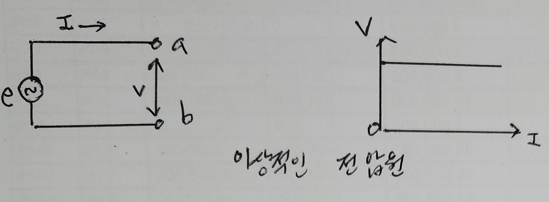 I →
a
e
V
b
V
O
I
이상적인 전압원